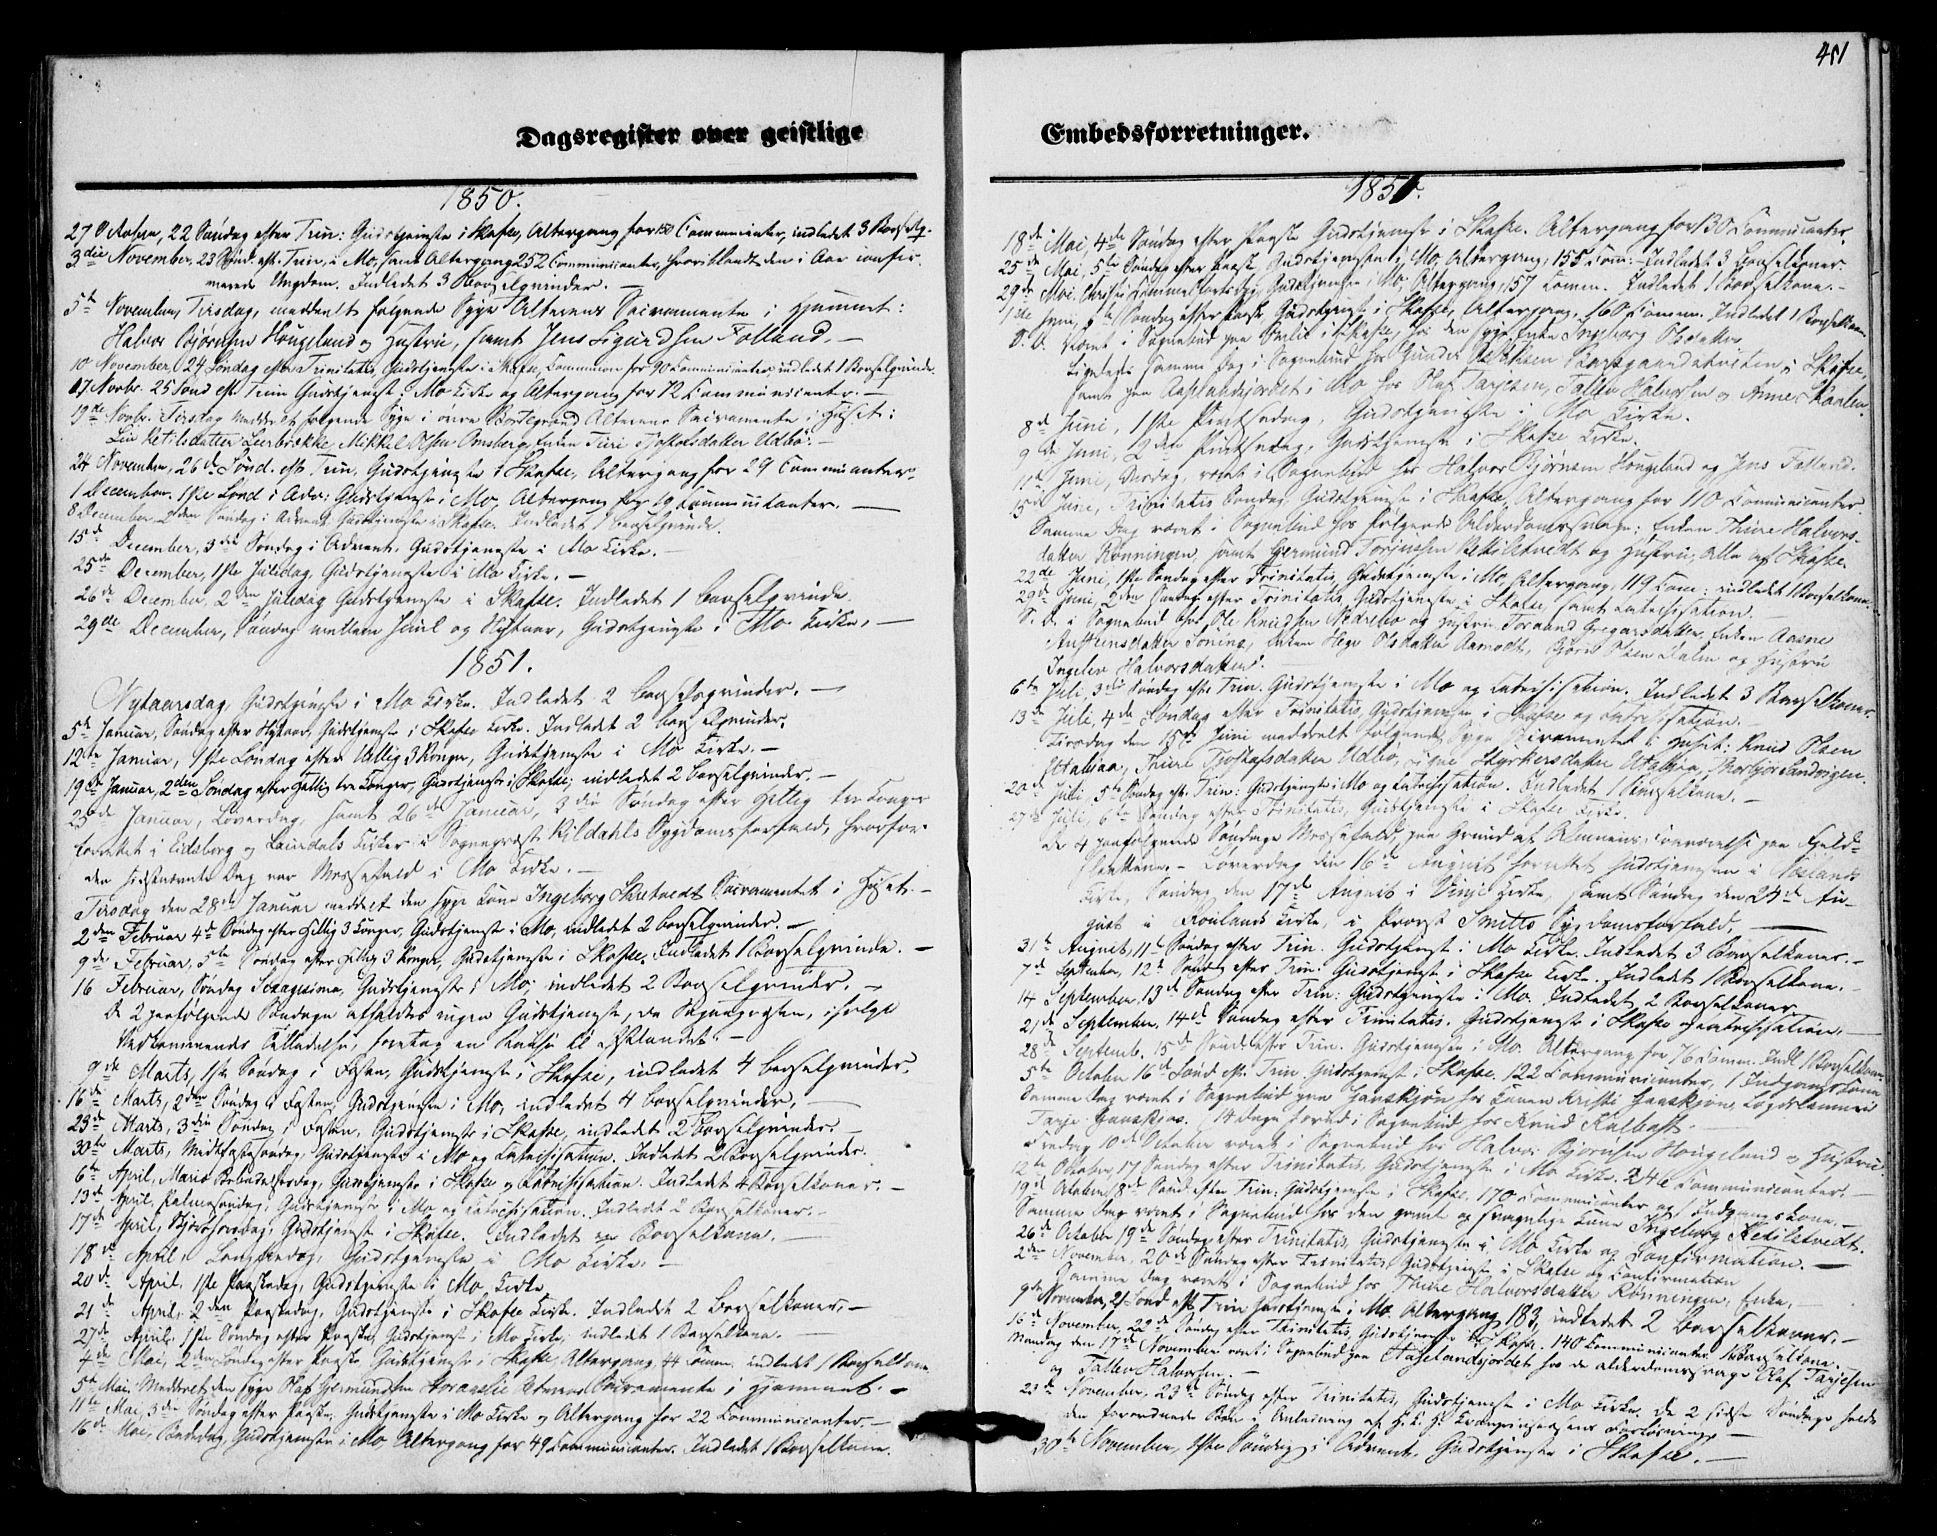 Dagsregister over geistlige
1850.
27 October, 22 Søndag efter Trin: Gudstjeneste i Skafse, Altergang for 150 Communicanter, indledet 3 Barselq.
3die November, 23 Sønd. eft. Trin, i Mo, samt Altergang 252 Communicanter, hvoriblandt den i Aar confir-
merede Ungdom. Indledet 3 Barselqvinder. —
5te November, Tirsdag, meddeelt følgende Syge Alterens Sacramente i Hjemmet:
Halvor Bjørnsen Hougeland og Hustru, samt Jens Sigurdsen Folland. —
10 November, 24 Søndag efter Trinitatis, Gudstjeneste i Skafse, Communion for 90 Communicanter, indledet 1 Barselqvinde.
17 Novbr. 25 Sønd eft. Trin Gudstjeneste i Mo Kirke og Altergang for 72 Communicanter. —
19de Novbr. Tirsdag meddeelt følgende Syge i øvre Bortegrend Alterens Sacramente i Huset:
Liv Ketilsdatter Lerbrække, Mikkel Olsen Omsberg, Enken Turi Tjostolsdatter Udbø. —
24 November, 26de Sønd. eft. Trin, Gudstjeneste i Skafse, Altergang for 29 Communicanter.
1 December. 1ste Sønd i Adv: Gudstjeneste i Mo, Altergang for 19 Communicanter. —
8 December 2den Søndag i Advent Gudstjeneste i Skafse. Indledet 1 Barselqvinde.
15de December, 3die Søndag i Advent. Gudstjeneste i Mo Kirke. —
25de December, 1ste Juledag, Gudstjeneste i Mo Kirke. —
26de December, 2den Juledag Gudstjeneste i Skafse. Indledet 1 Barselqvinde.
29de December, Søndag mellem Juul og Nytaar, Gudstjeneste i Mo Kirke. —
1851.
Nytaarsdag, Gudstjeneste i Mo Kirke. Indledet 2 Barselqvinder. —
5te Januar, Søndag efter Nytaar, Gudstjeneste i Skafse Kirke. Indledet 2 Barselqvinder.
12te Januar, 1ste Søndag efter Hellig 3 Konger, Gudstjeneste i Mo Kirke. —
19de Januar, 2den Søndag efter Hellig tre Konger, Gudstjeneste i Skafse; indledet 2 Barselqvinder. —
25de Januar, Løverdag, samt 26de Januar, 3die Søndag efter Hellig tre Konger
forrettet i Eidsborg og Laurdals Kirker i Sognepræst Kildahls Sygdomsforfald, hvorfor
den sidstnævnte Dag var Messefald i Mo Kirke. —
Tirsdag den 28de Januar meddeelt den syge Kone Ingeborg Skretvedt Sacramentet i Huset. —
2den Februar 4de Søndag efter Hellig 3 Konger, Gudstjeneste i Mo, indledet 2 Barselqvinder. —
9de Februar, 5te Søndag efter Hellig 3 Konger, Gudstjeneste i Skafse, Indledet 1 Barselqvinde. —
16 Februar, Søndag Sexagesima, Gudstjeneste i Mo; indledet 2 Barselqvinder. —
De 2 paafølgende Søndage afholdes ingen Gudstjeneste, da Sognepræsten, ifølge
Vedkommendes Tilladelse, foretog en Reise til Østlandet. —
9de Marts, 1ste Søndag i Fasten, Gudstjeneste i Skafse, indledet 4 Barselqvinder.
16de Marts, 2den Søndag i Fasten, Gudstjeneste i Mo, indledet 4 Barselqvinder. —
23de Marts, 3die Søndag i Fasten, Gudstjeneste i Skafse, indledet 2 Barselqvinder. —
30te Marts, Midfastesøndag, Gudstjeneste i Mo og Catechisation. Indledet 2 Barselqvinder.
6te April, Mariæ Bebudelsesdag, Gudstjeneste i Skafse og Catechisation. Indledet 4 Barselkoner. —
13de April, Palmesøndag, Gudstjeneste i Mo og Catechisation. Indledet 2 Barselkoner. —
17de April, Skjærthorsdag, Gudstjeneste i Skafse. Indledet en Barselkone. —
18de April, Langfredag, Gudstjeneste i Mo Kirke. —
20de April, 1ste Paaskedag, Gudstjeneste i Mo Kirke
21de April, 2den Paaskedag, Gudstjeneste i Skafse Kirke. Indledet 2 Barselkoner. —
27de April, 1ste Søndag efter Paaske, Gudstjeneste i Mo Kirke, indledet 1 Barselkone. —
4de Mai, 2den Søndag efter Paaske, Gudstjeneste i Skafse, Altergang, 44 Comm. indledet 1 Barselkone
5te Mai, Meddelet den syge Olaf Gjermundsen Alterens Sacramente i Hjemmet. —
11te Mai, 3die Søndag efter Paaske, Gudstjeneste i Mo Kirke og Altergang for 22 Communicanter. —
16de Mai, Bededag, Gudstjeneste i Mo Altergang for 49 Communicanter. Indledet 1 Barselkone.
411
Embedsforretninger.
1851.
18de Mai, 4de Søndag efter Paaske Gudstjeneste i Skafse. Altergang for 130 Communicanter.
25de Mai, 5te Søndag efter Paaske, Gudstjeneste i Mo, Altergang, 155 Com: — Indledet 3 Barselkoner.
29de Mai. Christi Himmelfartsdag, Gudstjeneste i Mo, Altergang, 157 Comm. Indledet 1 Barselkone. —
1ste Juni, 6te Søndag efter Paaske Gudstjeneste i Skafse, Altergang, 160 Comm. Indledet 1 Barselkone.
S. D. været i Sognebud paa i Skafse, hos den syge Enke Ingeborg Olsdatter
Ligeledes samme Dag i Sognebud hos Gunder i Skafse,
samt paa Aaslandsjordet i Mo hos Olaf Tarjesen, Tallev Halvorsen og Anne Skaalen.
8de Juni, 1ste Pintsedag, Gudstjeneste i Mo Kirke.
9de Juni, 2den Pintsedag, Gudstjeneste i Skafse Kirke.
11te Juni, Onsdag, været i Sognebud hos Halvor Bjørnsen Hougeland og Jens Folland.
15de Juni, Trinitatis Søndag Gudstjeneste i Skafse, Altergang for 110 Communicanter
Samme Dag været i Sognebud hos følgende Alderdomssvage: Enken Thure Halvors-
datter Rønningen, samt Gjermund Torjusen Ketilstvedt og Hustru, alle af Skafse.
22de Juni, 1ste Søndag efter Trinitatis, Gudstjeneste i Mo, Altergang, 119 Com: indledet 1 Barselkone.
29de Juni, 2den Søndag efter Trinitatis, Gudstjeneste i Skafse, samt Catechisation. —
S. D. i Sognebud hos Ole Knudsen Nedrebø og Hustru Torgaand Gregarsdatter, Enken Aasne
Austensdatter Enken Hege Olsdatter Aamodt, Bjørn Olsen Dalen og Hustru
Ingelev Halvorsdatter. —
6te Juli, 3die Søndag efter Trin. Gudstjeneste i Mo og Catechisation. Indledet 3 Barselkoner.
13de Juli, 4de Søndag efter Trinitatis, Gudstjeneste i Skafse og Catechisation. —
Tirsdag den 15de Juni meddeelt følgende Syge Sacramentet i Huset: Knud Olsen
Uttabjaa, Turi Tjostolsdatter Udbø, Signe Styrkersdatter Utabjaa, Thorbjør Sandvigen
20de Juli, 5te Søndag eft. Trin: Gudstjeneste i Mo og Catechisation. Indledet 1 Barselkone. —
27de Juli, 6te Søndag efter Trinitatis, Gudstjeneste i Skafse Kirke.
De 4 paafølgende Søndage Messefald, paa Grund af Almuens Fraværelse paa Fjeld-
slaatterne. — Løverdag den 16de August forrettet Gudstjenesten i Nesland
Kirke, Søndag den 17de August i Vinje Kirke, samt Søndag den 24de Au-
gust i Roulands Kirke, i Provst Smitts Sygdomsforfald. —
31te August, 11te Søndag efter Trin. Gudstjeneste i Mo Kirke. Indledet 3 Barselkoner. —
7de September, 12te Søndag efter Trin: Gudstjeneste i Skafse Kirke. Indledet 1 Barselkone. —
14 September, 13de Søndag efter Trin: Gudstjeneste i Mo. Indledet 2 Barselkoner
21de September, 14de Søndag efter Trinitatis. Gudstjeneste i Skafse og Catechisation. —
28de Septemb. 15de Sønd. efter Trin. Gudstjeneste i Mo. Altergang for 76 Comm. Indl 1 Barselkone
5te October 16de Sønd eft. Trin. Gudstjeneste i Skafse. 122 Communicanter, 1 Indgangskone
Samme Dag været i Sognebud paa Gavskjøn hos Konen Kristi Gavskjøn, Lægdslemmen
Tarje Gavskjøn. 14 Dage forud i Sognebud hos Knud Kalbast. —
Fredag 10de October været i Sognebud hos Halvor Bjørnsen Hougeland og Hustru
12te October, 17 Søndag efter Trinitatis, Gudstjeneste i Mo Kirke. 246 Communicanter. —
19de October 18de Sønd efter Trin: Gudstjeneste i Skafse. 170 Communicanter og 1 Indgangskone. —
Samme Dag været i Sognebud hos den gamle og svagelige Kone Ingeborg Ketilstvedt.
26de October 19de Søndag efter Trinitatis, Gudstjeneste i Mo Kirke og Confirmation. —
2den November, 20de Søndag efter Trinitatis, Gudstjeneste i Skafse og Confirmation
Samme Dag været i Sognebud hos Thure Halvorsdatter Rønningen, Enke. —
9de November, 21 Sønd eft. Trin Gudstjeneste i Mo. Altergang 183, indledet 2 Barselkoner. —
16de November, 22de Søndag efter Trinitatis, Gudstjeneste i Skafse. 140 Communicanter. 1 Barselkone.
Mandag den 17de November været i Sognebud paa Aaselandsjordet hos de alderdomssvage Olaf Tarjesen
og Tallev Halvorsen. —
23de November, 23de Søndag efter Trinitatis, Gudstjeneste i Mo Kirke, de 2 sidste Søndage holdt
den forordnede Bøn i Anledning af H. K. H. Kronprindsessens Forløsning. —
30te November, 1ste Søndag i Advent, Gudstjeneste i Skafse. —